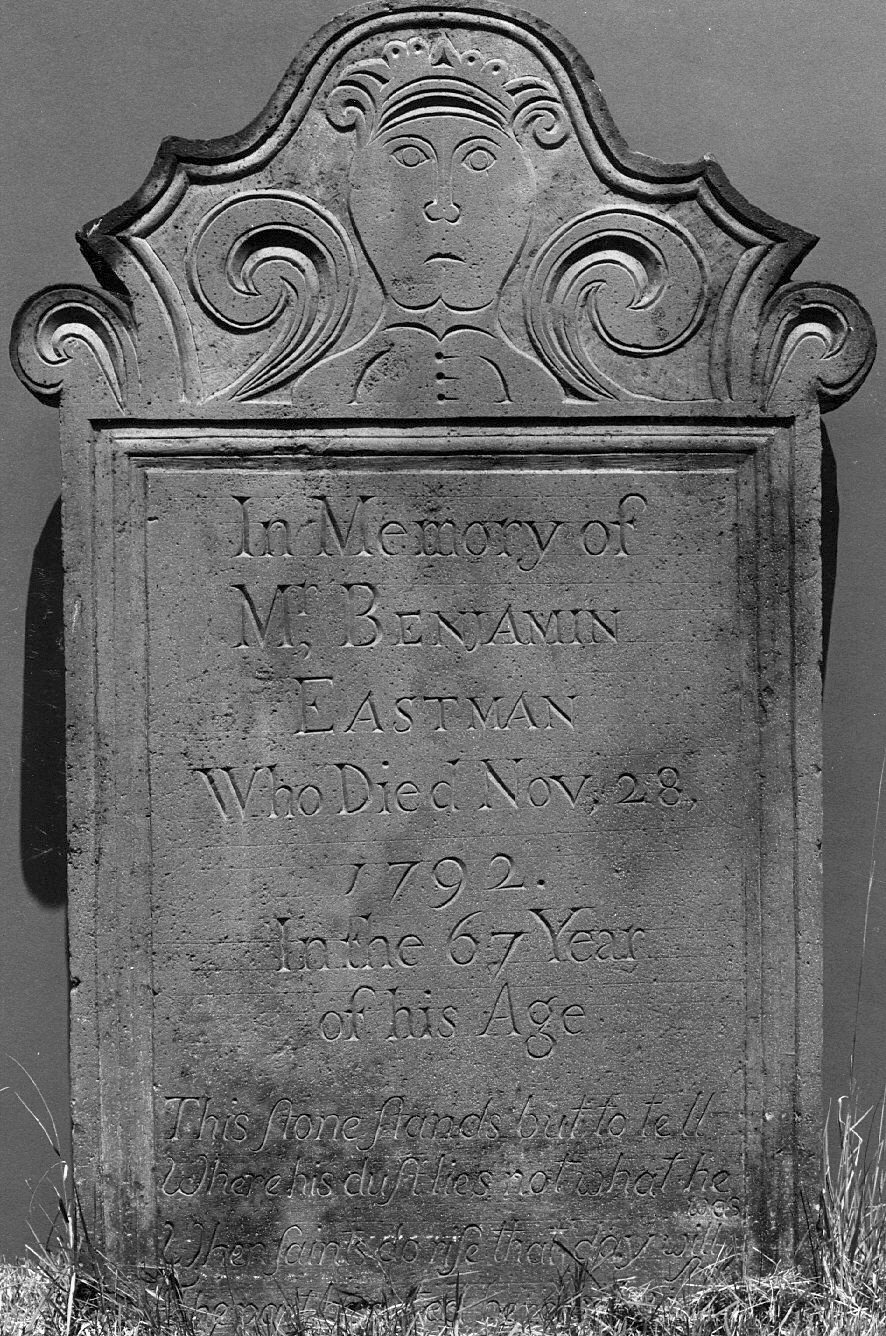 In Memory of
Mr. BENJAMIN
EASTMAN
Who Died Nov, 28,
1792.
In the 67 Year
of his Age
This ſtone ſtands but to tell
Where his duſt lies not what he
was
When ſaints do riſe that day will
The part